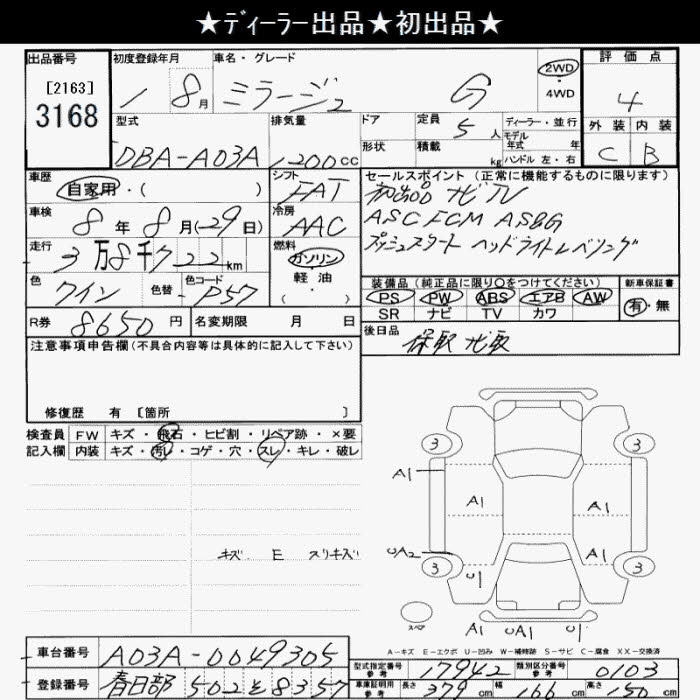 ★ディーラー出品★初出品★
出品番号 初度登録年月 車名・グレード 評価点
[2163] 3168 1 8月 ミラージュ G 2WD ・ 4WD 4
型式 排気量 ドア 定員 5人 ディーラー・並行 外装 内装
DBA-A03A 1200cc 形状 積載 kg モデル年式 年 ハンドル 左・右 C B
車歴 シフト セールスポイント (正常に機能するものに限ります)
自家用・( ) FAT 初出品 ナビTV
車検 8年8月(29日) 冷房 AAC ASC FCM ASBG
走行 3万8千722km 燃料 ガソリン プッシュスタート ヘッドライトレベリング
色 ワイン 色替 色コード P57 軽油 ・( ) 装備品 (純正品に限り○をつけてください) 新車保証書
PS PW ABS エアB AW 有・無
SR ナビ TV カワ
R券 8650円 名変期限 月 日 後日品
保取 ナビ取
注意事項申告欄(不具合内容等は具体的に記入して下さい)
修復歴 有 [箇所 ]
検査員 FW キズ・飛石・ヒビ割・リペア跡・×要
記入欄 内装 キズ・汚レ・コゲ・穴・スレ・キレ・破レ
3 3
A1
A1 A1
キズ E スリキズ
UA2 A1
3 U1 3
スペア
A1 UA1 U1
A-キズ E-エクボ U-凹み W-補修跡 S-サビ C-腐食 XX-交換済
車台番号 A03A-0049305 型式指定番号 参考 17942 類別区分番号 参考 0103
登録番号 春日部 502 そ 8357 車庫証明用 参考 長さ 379cm 幅 166cm 高さ 150cm